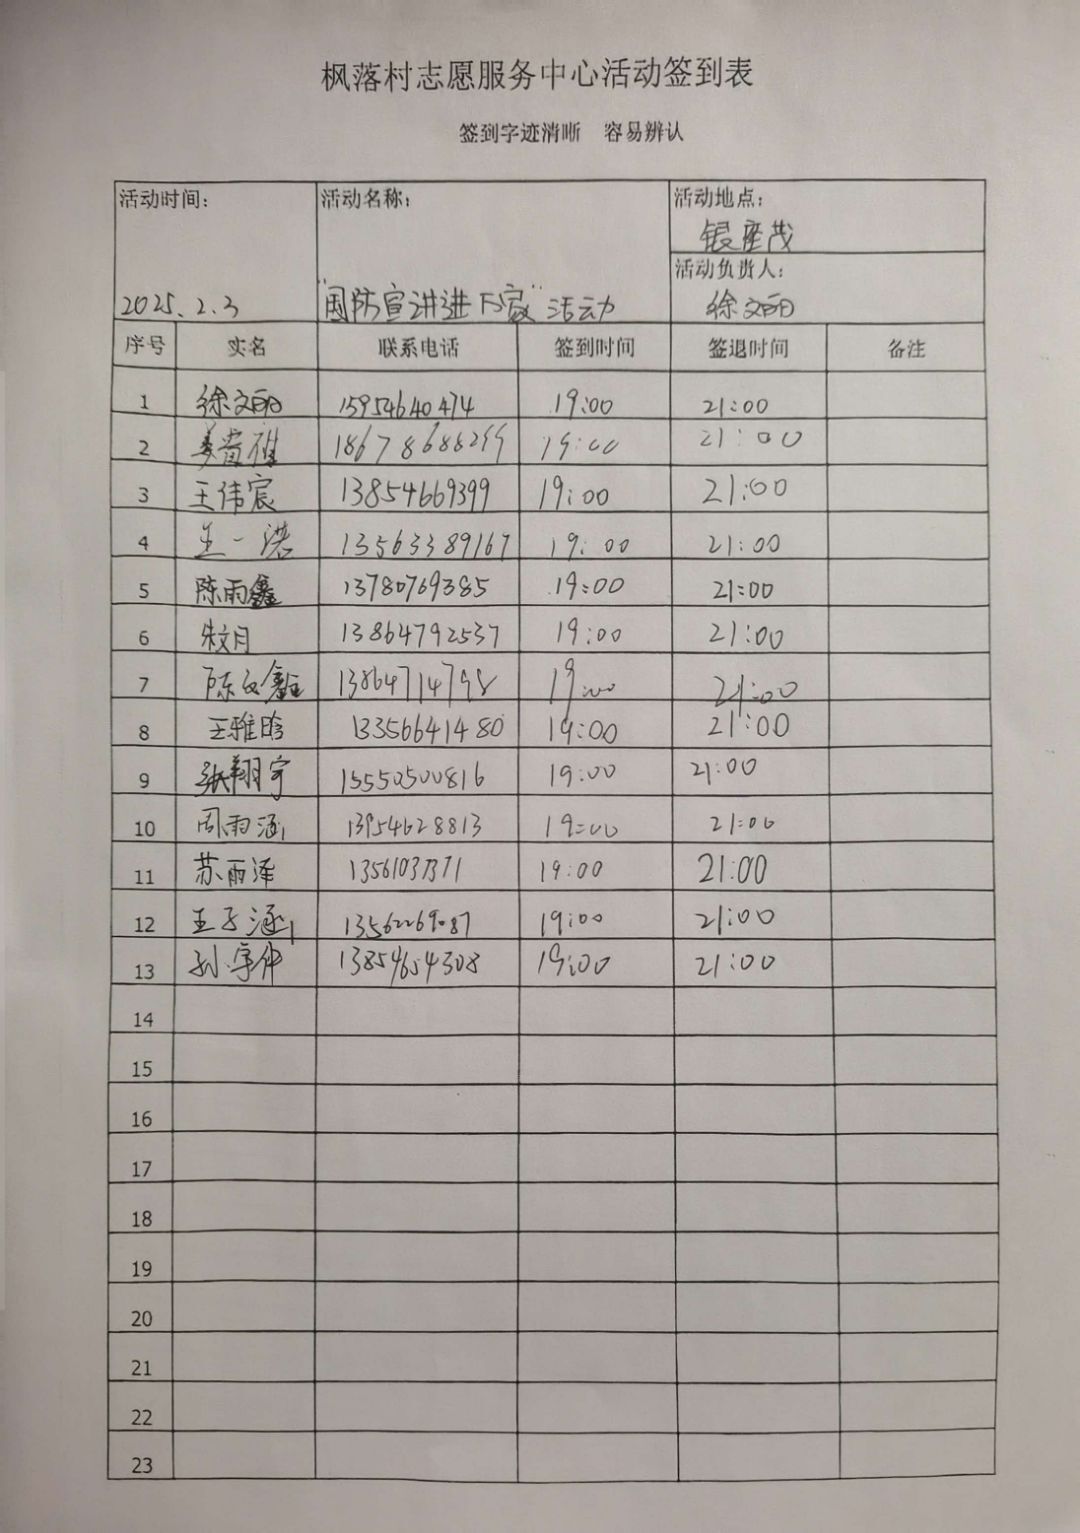 枫落村志愿服务中心活动签到表
签到字迹清晰 容易辨认
活动时间: 活动名称: 活动地点:
银座茂
活动负责人:
2025.2.3 "国防宣讲进万家"活动 徐文丽
序号 实名 联系电话 签到时间 签退时间 备注
1 徐文丽 15954640474 19:00 21:00
2 18678688299 19:00 21:00
3 王伟宸 13854669399 19:00 21:00
4 王一诺 13563389167 19:00 21:00
5 陈雨鑫 13780769385 19:00 21:00
6 朱文月 13864792537 19:00 21:00
7 13864714798 19:00 21:00
8 王雅晗 13356641480 19:00 21:00
9 张翔宇 15550500816 19:00 21:00
10 周雨涵 13954628813 19:00 21:00
11 苏雨泽 19:00 21:00
12 王子涵 13562269087 19:00 21:00
13 13854654308 19:00 21:00
14
15
16
17
18
19
20
21
22
23